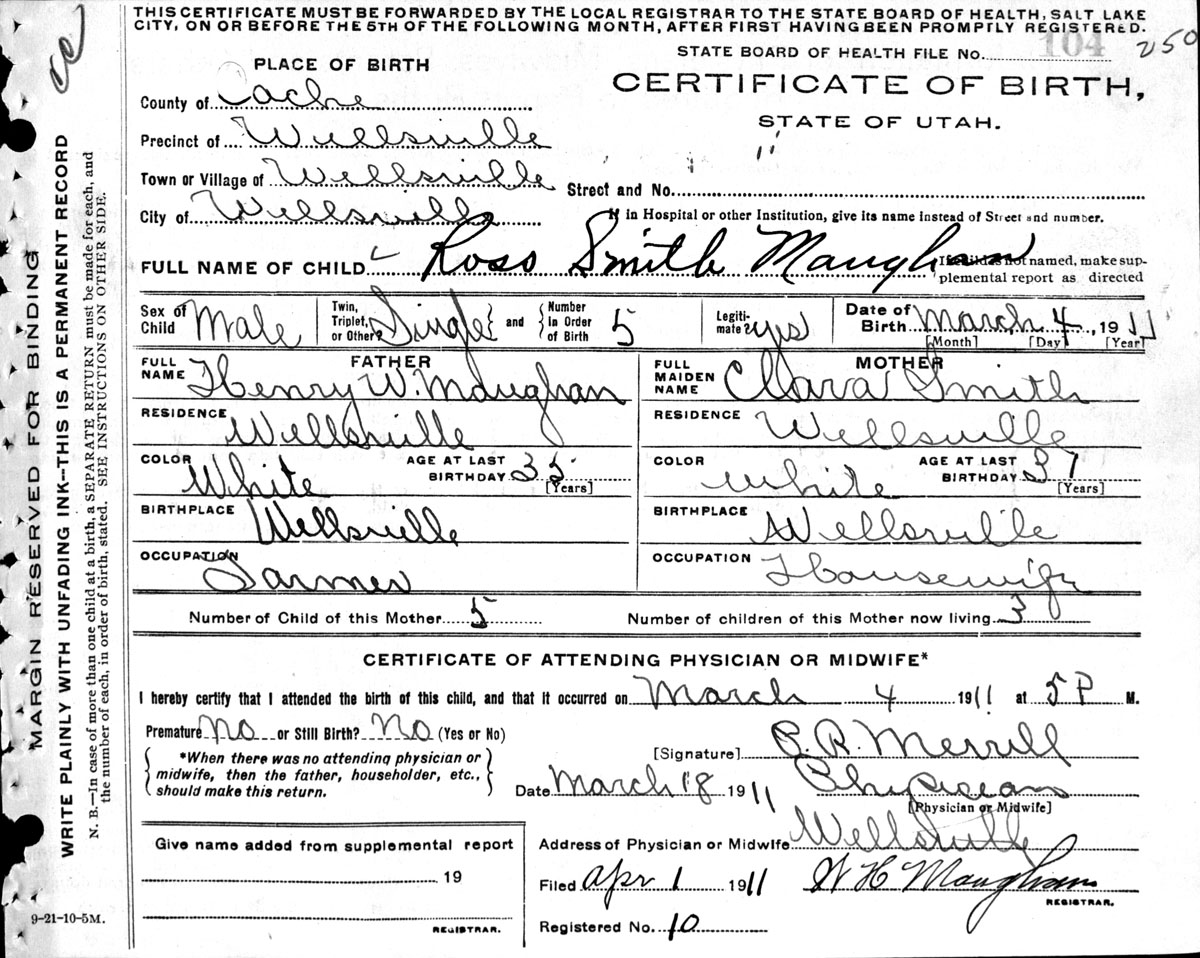 THIS CERTIFICATE MUST BE FORWARDED BY THE LOCAL REGISTRAR TO THE STATE BOARD OF HEALTH, SALT LAKE
CITY, ON OR BEFORE THE 5TH OF THE FOLLOWING MONTH, AFTER FIRST HAVING BEEN PROMPTLY REGISTERED.
STATE BOARD OF HEALTH FILE No. 104 250
PLACE OF BIRTH
CERTIFICATE OF BIRTH,
STATE OF UTAH.
County of Cache
Precinct of Wellsville
Town or Village of Wellsville
Street and No.
City of Wellsville
If in Hospital or other Institution, give its name instead of Street and number.
FULL NAME OF CHILD Ross Smith Maughan
If child is not named, make sup-
plemental report as directed
Sex of Child Male
Twin, Triplet, or Other? Single and Number In Order of Birth 5
Legiti-mate? yes
Date of Birth March 4, 1911
[Month] [Day] [Year]
FATHER
FULL NAME Henry W. Maughan
RESIDENCE Wellsville
COLOR White
AGE AT LAST BIRTHDAY 35 [Years]
BIRTHPLACE Wellsville
OCCUPATION Farmer
MOTHER
FULL MAIDEN NAME Clara Smith
RESIDENCE Wellsville
COLOR white
AGE AT LAST BIRTHDAY 37 [Years]
BIRTHPLACE Wellsville
OCCUPATION Housewife
Number of Child of this Mother 5
Number of children of this Mother now living 3
CERTIFICATE OF ATTENDING PHYSICIAN OR MIDWIFE*
I hereby certify that I attended the birth of this child, and that it occurred on March 4 1911 at 5 P M.
Premature No or Still Birth? No (Yes or No)
*When there was no attending physician or
midwife, then the father, householder, etc.,
should make this return.
[Signature] P. R. Merrill
Date March 18 1911 Physician
[Physician or Midwife]
Give name added from supplemental report
19
REGISTRAR.
Address of Physician or Midwife Wellsville
Filed Apr 1 1911 W H Maughan
REGISTRAR.
Registered No. 10
9-21-10-5M.
MARGIN RESERVED FOR BINDING
WRITE PLAINLY WITH UNFADING INK—THIS IS A PERMANENT RECORD
N. B.—In case of more than one child at a birth, a SEPARATE RETURN must be made for each, and
the number of each, in order of birth, stated. SEE INSTRUCTIONS ON OTHER SIDE.